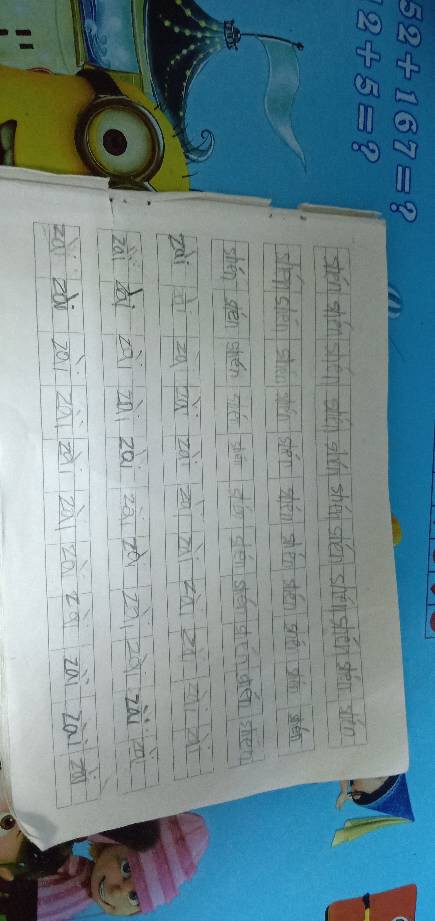 52+167=?
12+5=?
shén shén shén shén shén shén shén shén shén shén shén
shén shén shén shén shén shén shén shén shén shén shén
shén shén shén shén shén shén shén shén shén shén shén
zài zài zài zài zài zài zài zài zài zài zài
zài zài zài zài zài zài zài zài zài zài zài
zài zài zài zài zài zài zài zài zài zài zài